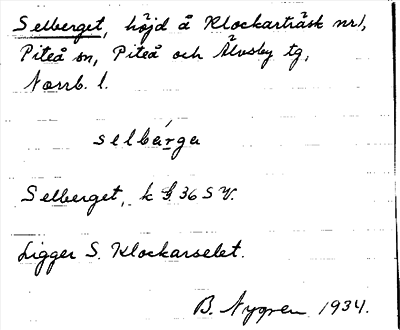 Selberget, höjd å Klockarträsk nr 1,
Piteå sn, Piteå och Älvsby tg,
Norrb. l.
selbárga
Selberget, k G. 36 S V.
Ligger S. Klockarselet.
B. Nygren 1934.